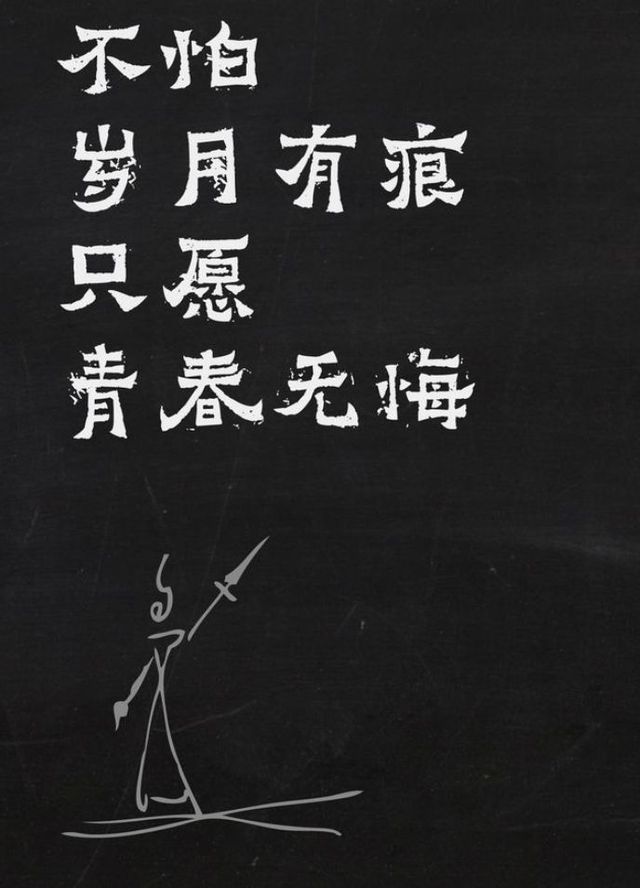 不怕
岁月有痕
只愿
青春无悔